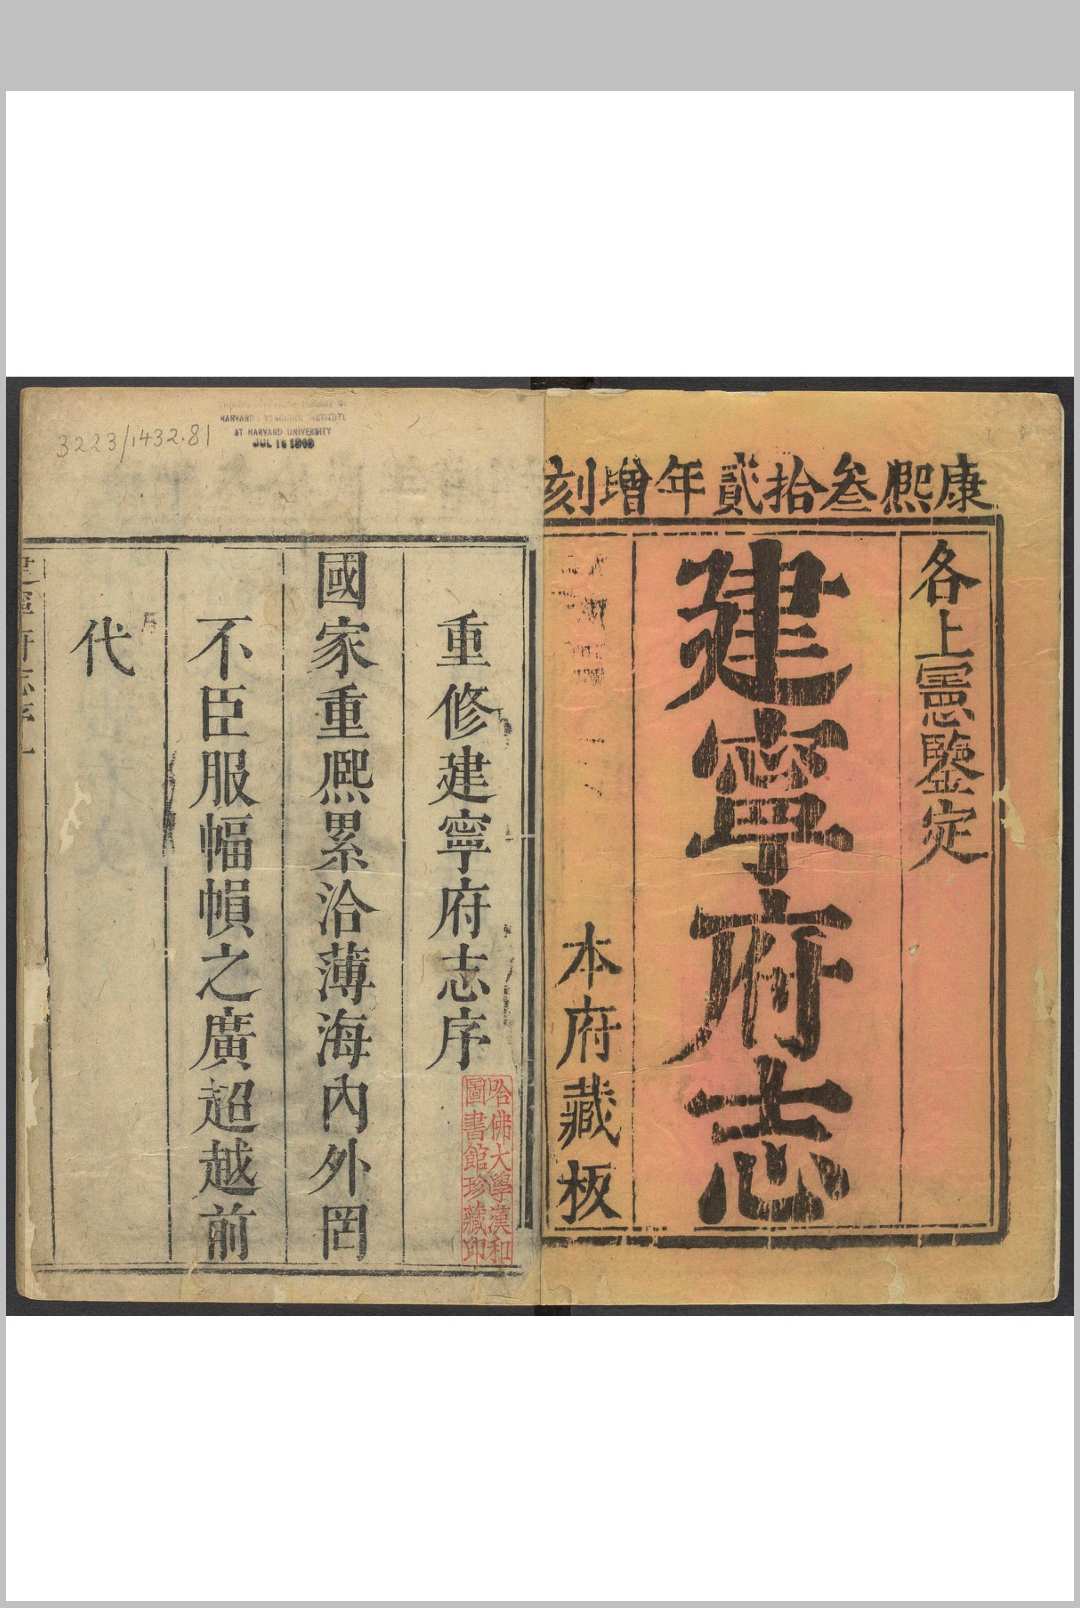 康熙叁拾貳年增刻
各上憲鑒定
建寧府志
本府藏板
3223/1432.81
AT HARVARD UNIVERSITY
JUL 16 1909
重修建寧府志序
國家重熙累洽薄海內外罔
不臣服幅幀之廣超越前
代
哈佛大學漢和
圖書館珍藏印